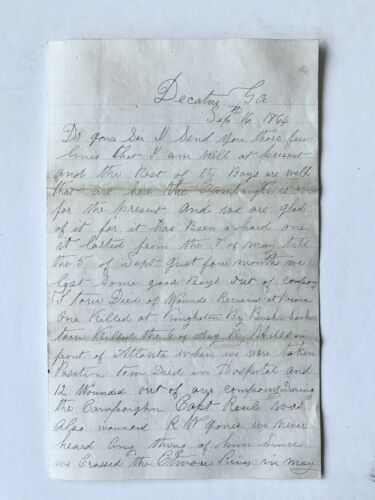 Decatur Ga
Sept 16th 1864
Dr Jones Ser I Send you those few
lines that I am Well at present
and the Rest of the Boys are well
that are here the Campaign is over
for the present And we are glad
of it for it has Been a hard one
it lasted from the 7 of may till
the 5 of Sept just four months we
lost Some good Boys out of company
Died of Wounds Received at
One Killed at Kingston By Bushwhackers
Killed the 6 of Aug By Shell in
front of Atlanta when we ware taken
Position Died in Hospital and
12 Wounded out of our company During
the Campaighn Capt was
Also wounded R W Jones we never
heard Any thing of him Since
we Crossed the Etowa River in may